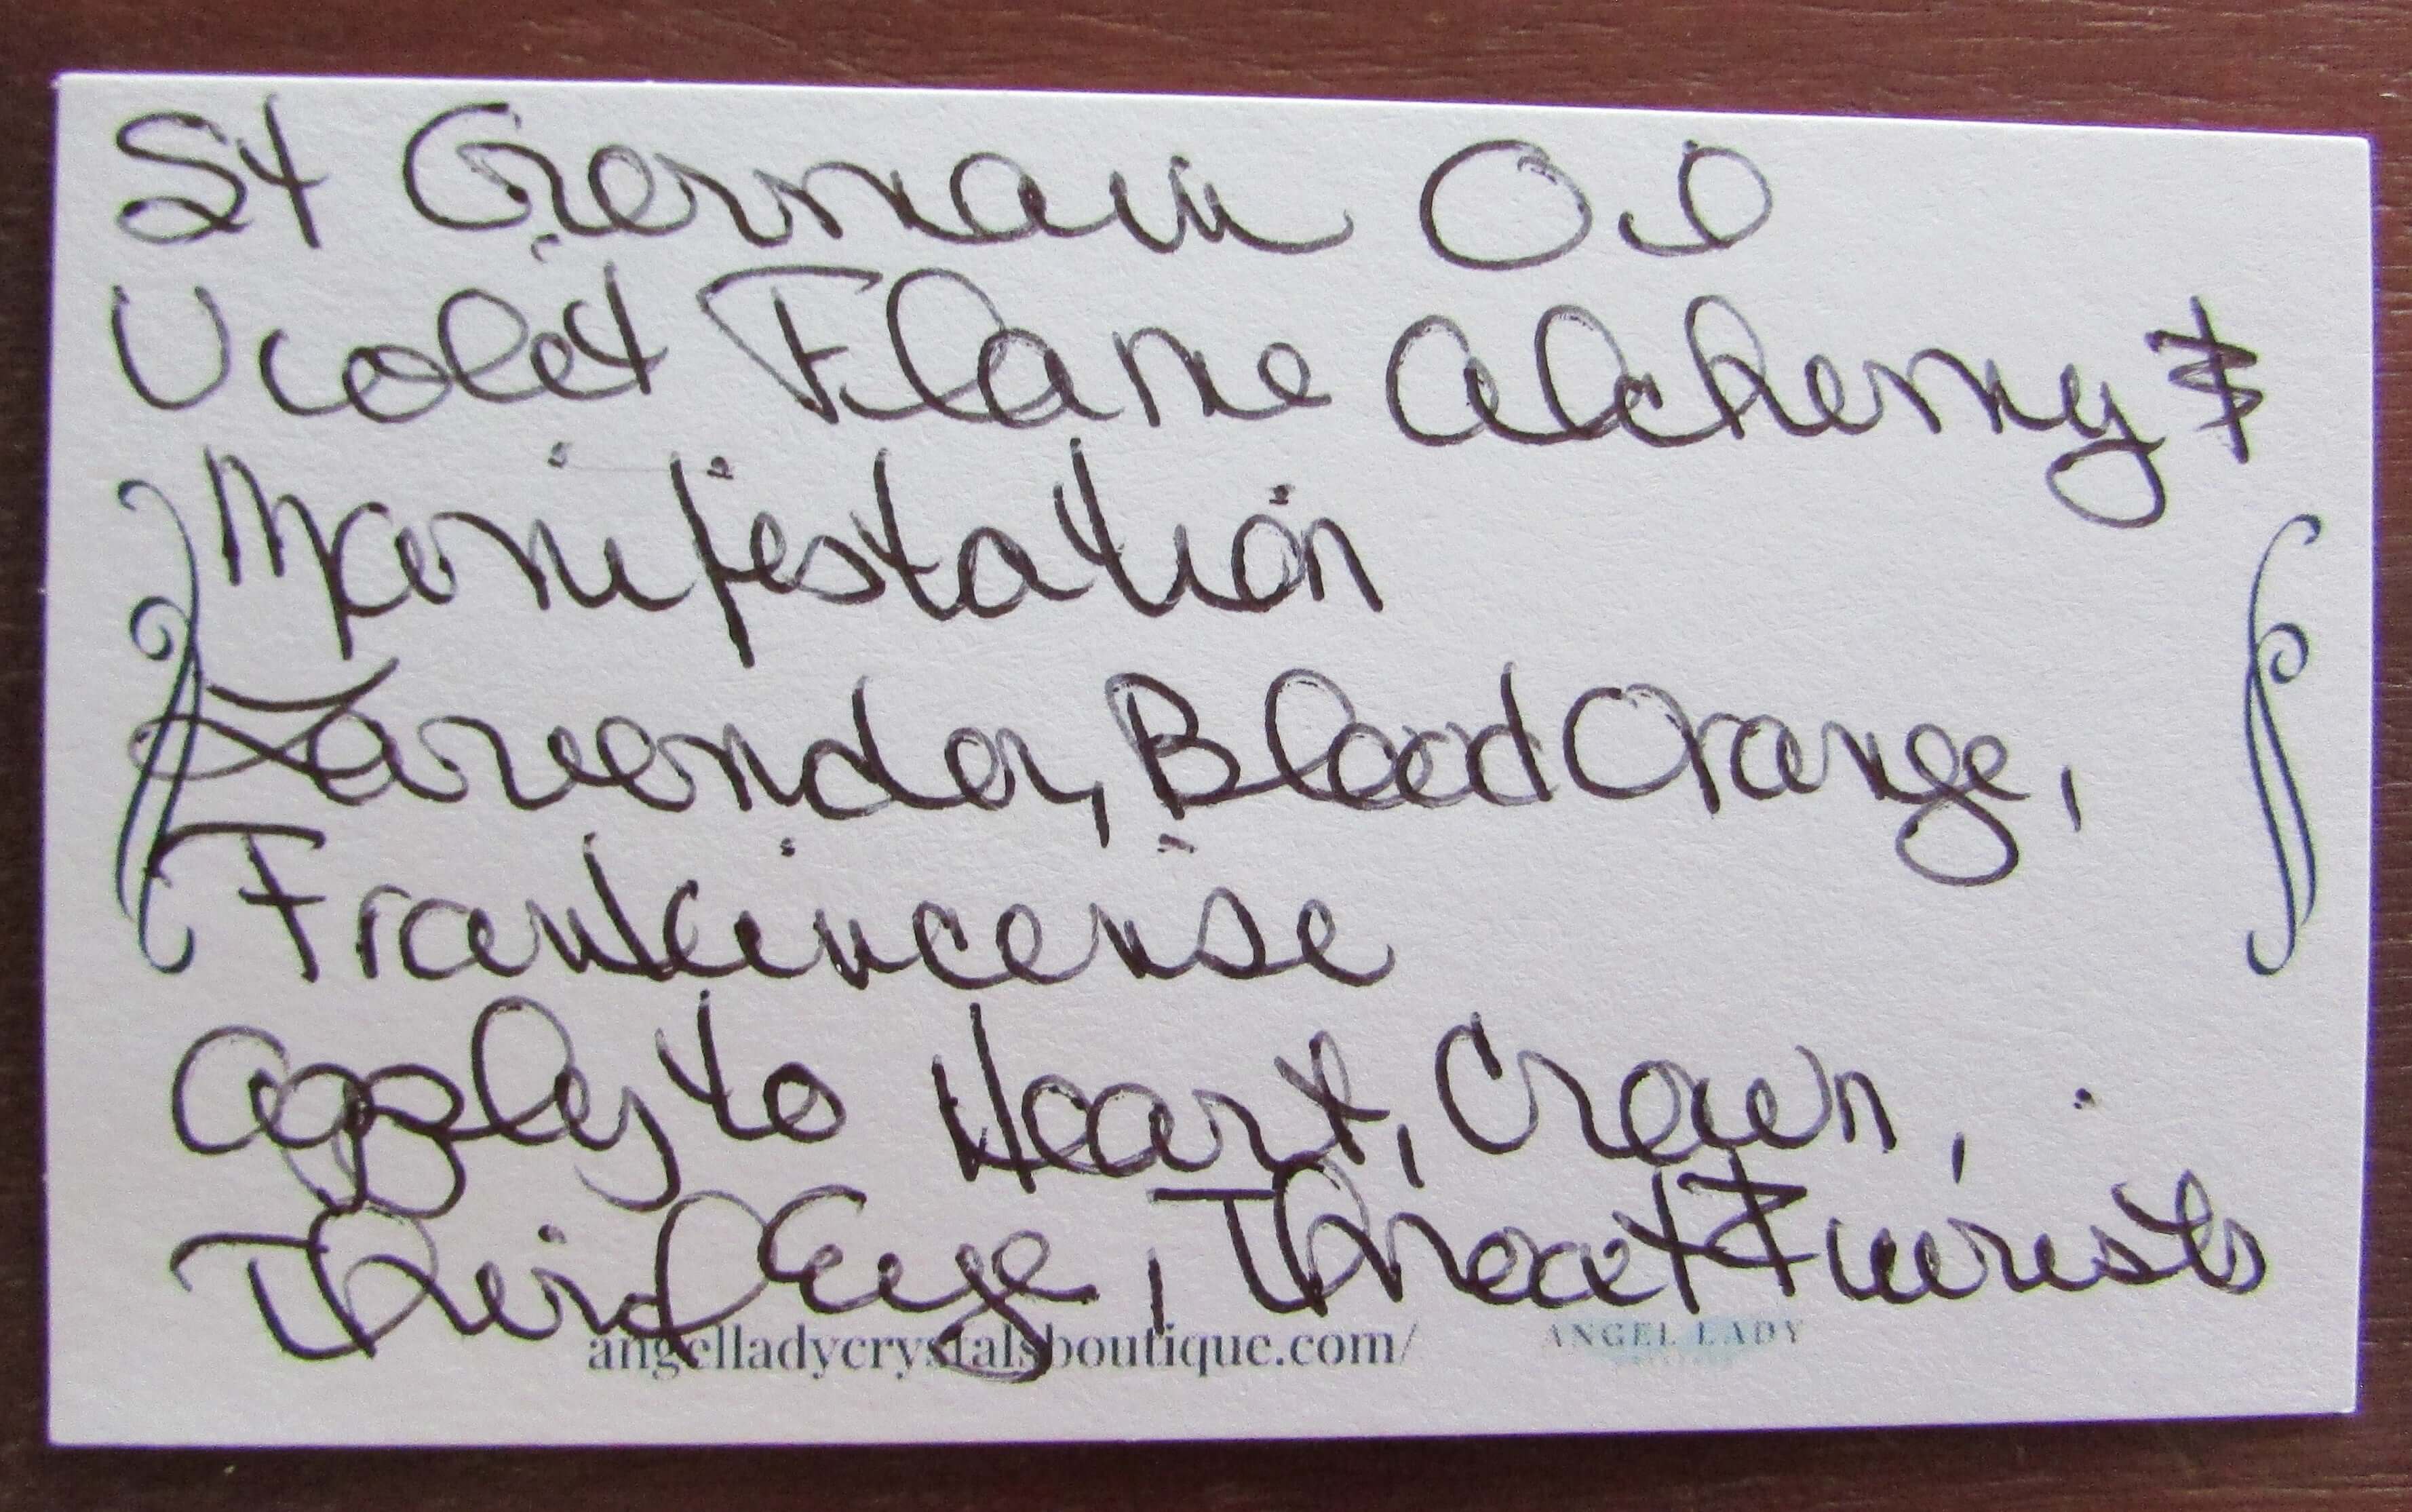 St Germain Oil
Violet Flame Alchemy &
Manifestation
Lavendar, Blood Orange,
Frankincense
apply to Heart, Crown,
Third Eye, Throat & wrists
angelladycrystalsboutique.com/
ANGEL LADY